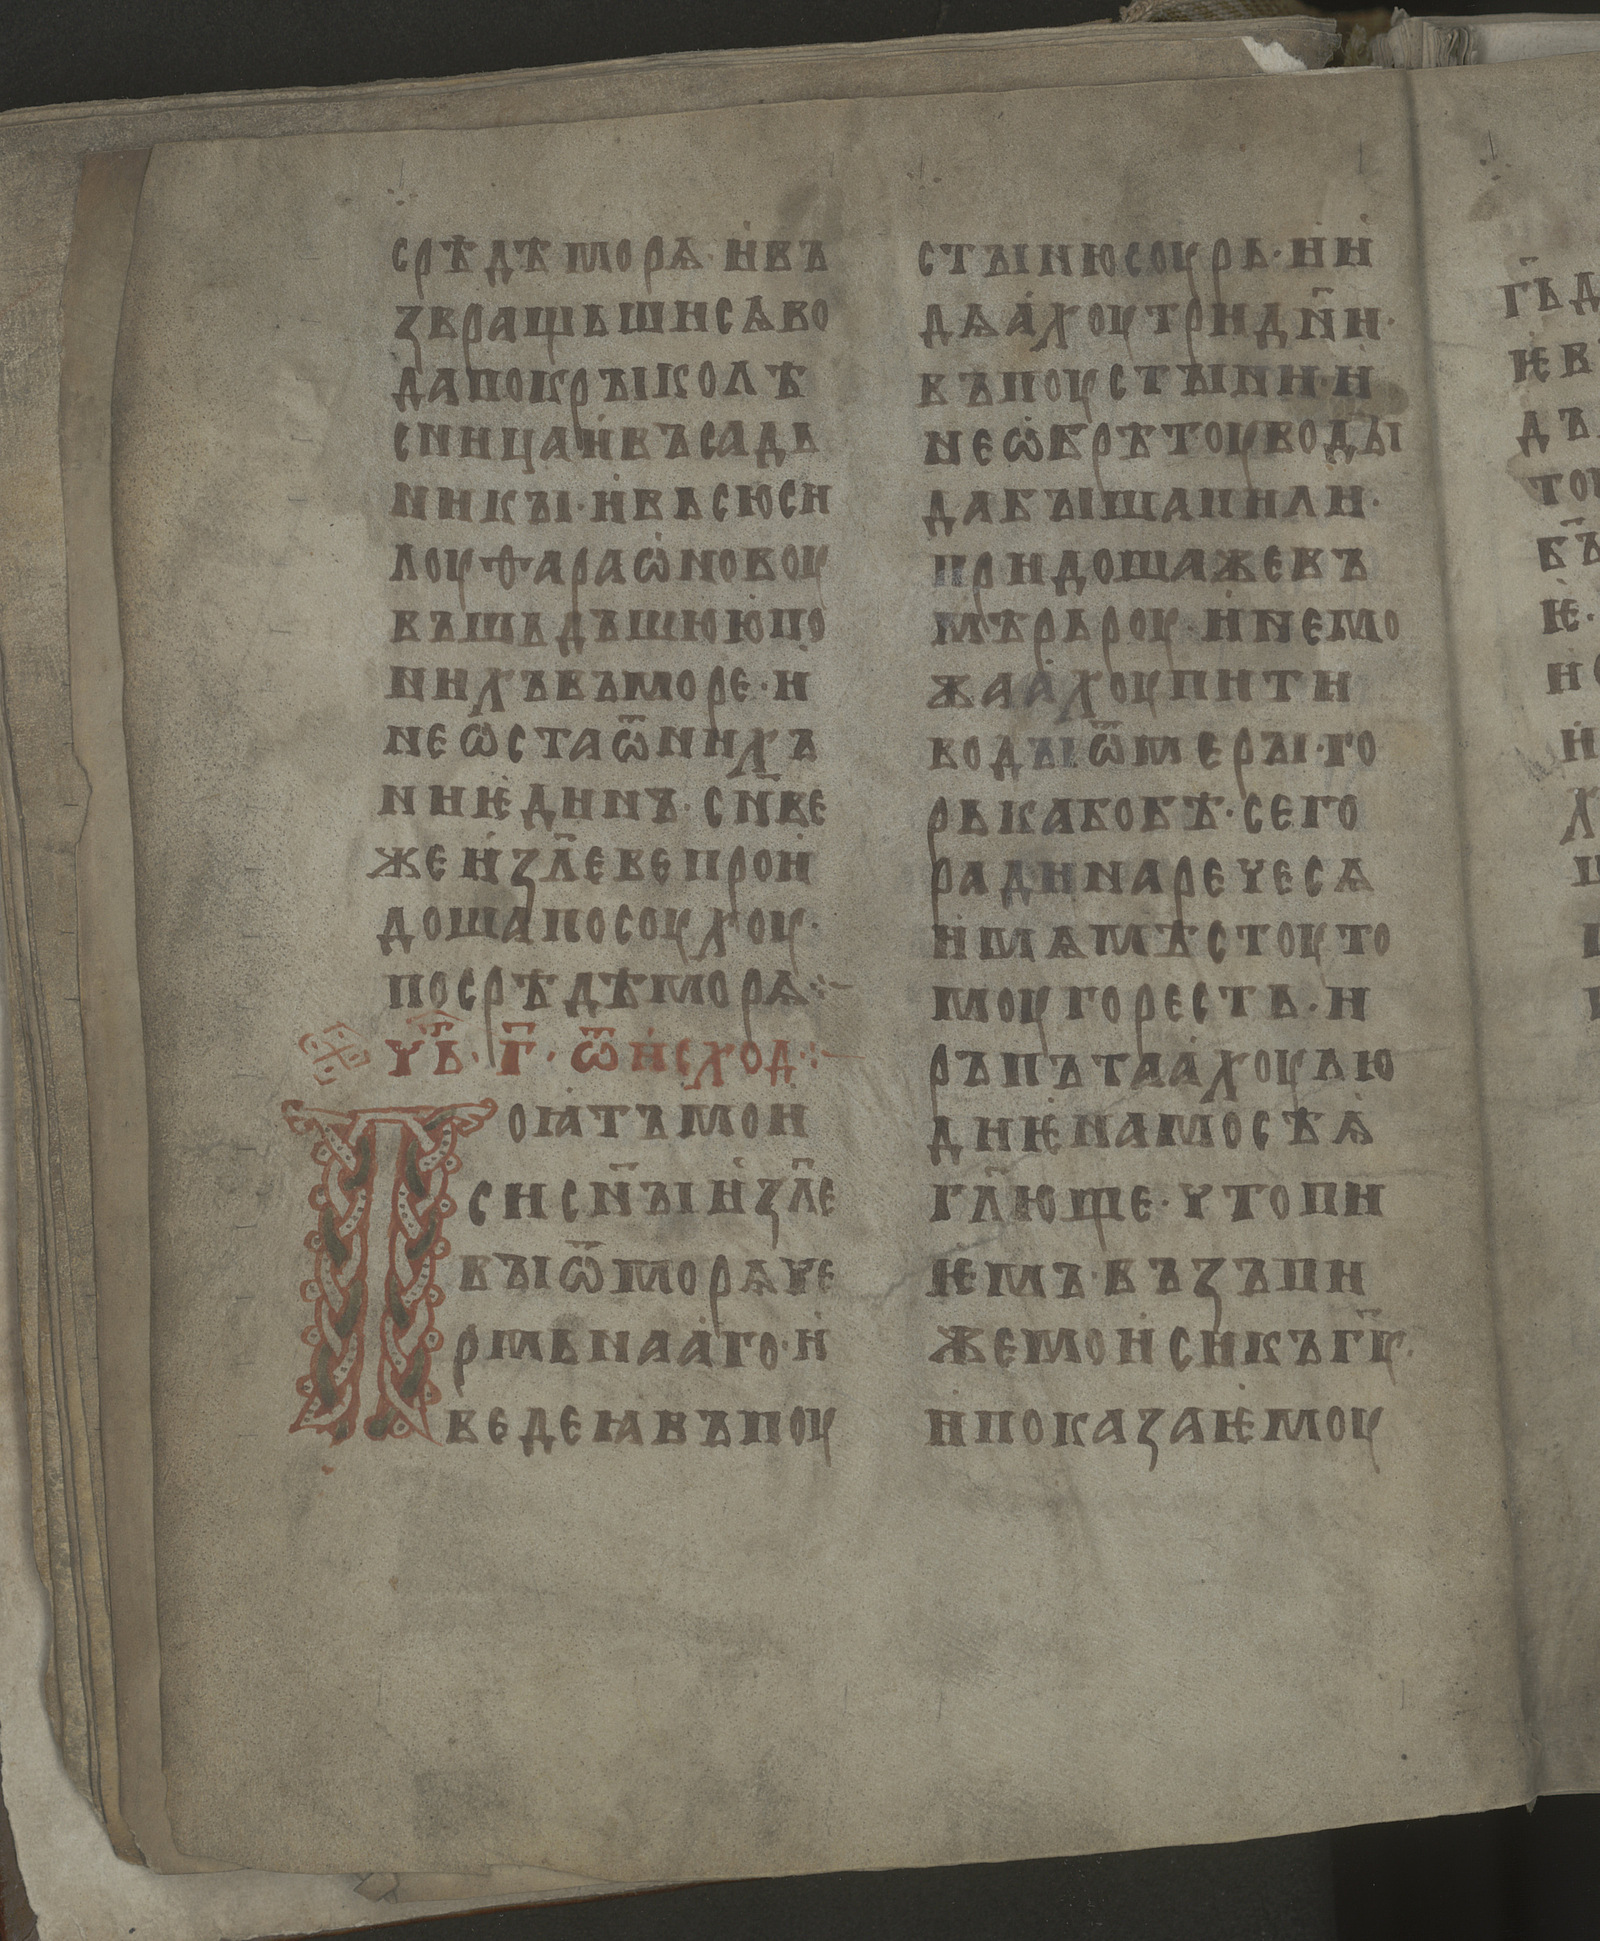 срѣдѣ морѧ· и въ
звращьшисѧ во
да покры колѣ
сница и въсадь
никы· и вьсю си
лоу фараѡновоу
въшьдъшюю по
нихъ въ море· и
не ѡста ѿ нихъ
ни ѥдинъ· сн҃ве
же из҃леве прои
доша по соухоу·
посрѣдѣ морѧ:~
чт҃ь· г҃· ѿ исход:~
Тогꙗ тъ мои
си сн҃ы из҃ле
вы ѿ морѧ че
рмьнааго· и
веде ꙗ въ поу
стыню соурь· и и
дѧахоу три дн҃и·
въ поустыни· и
не ѡбрѣтоу воды
да быша пили·
придоша же въ
мѣрьроу· и не мо
жаахоу пити
воды ѿ меры· го
рька бо бѣ· сего
ради наречесѧ
имѧ мѣстоу то
моу горесть· и
ръпътаахоу лю
диѥ на мосѣѧ
гл҃юще· что пи
ѥмъ· възъпи
же моиси къ г҃у·
и показа ѥмоу
г҃ь д